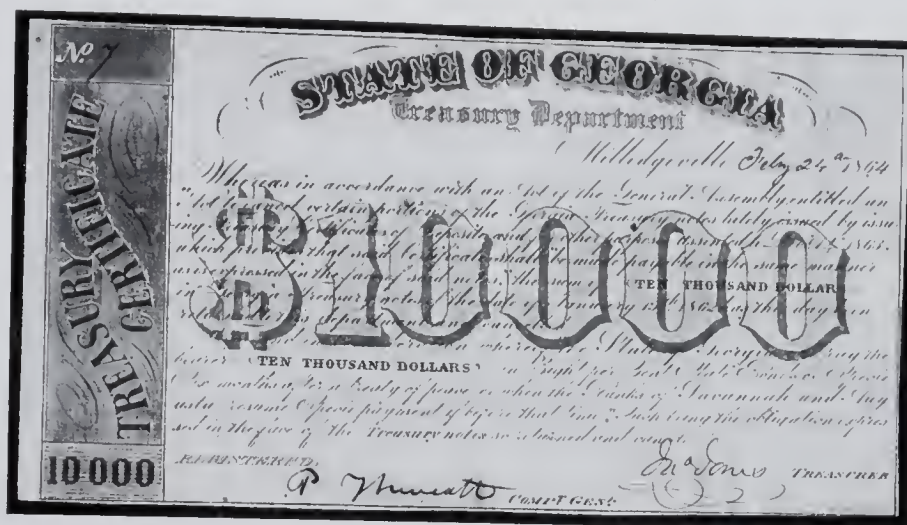 No. 7
TREASURY CERTIFICATE
10·000
STATE OF GEORGIA
Treasury Department
Milledgeville Feby 24th 1864
Whereas in accordance with an Act of the General Assembly entitled an
Act to cancel certain portions of the Georgia Treasury notes lately issued by issu
ing Treasury Certificates of Deposit and for other purposes assented to 1863.
which provides that said Certificates shall be made payable in the same manner
as is expressed in the face of said notes, the sum of TEN THOUSAND DOLLARS
$10000
of Treasury notes of the date of January 15th 1862 has this day been
returned to this department and cancelled
the State of Georgia will pay the
bearer TEN THOUSAND DOLLARS in Eight per Cent State Bonds or Specie
Six months after a treaty of peace or when the Banks of Savannah and Aug
usta resume Specie payment if before that time. Such being the obligation expres
sed in the face of the Treasury notes so returned and
REGISTERED.
P Thweatt COMPT. GENL.
Jno Jones TREASURER